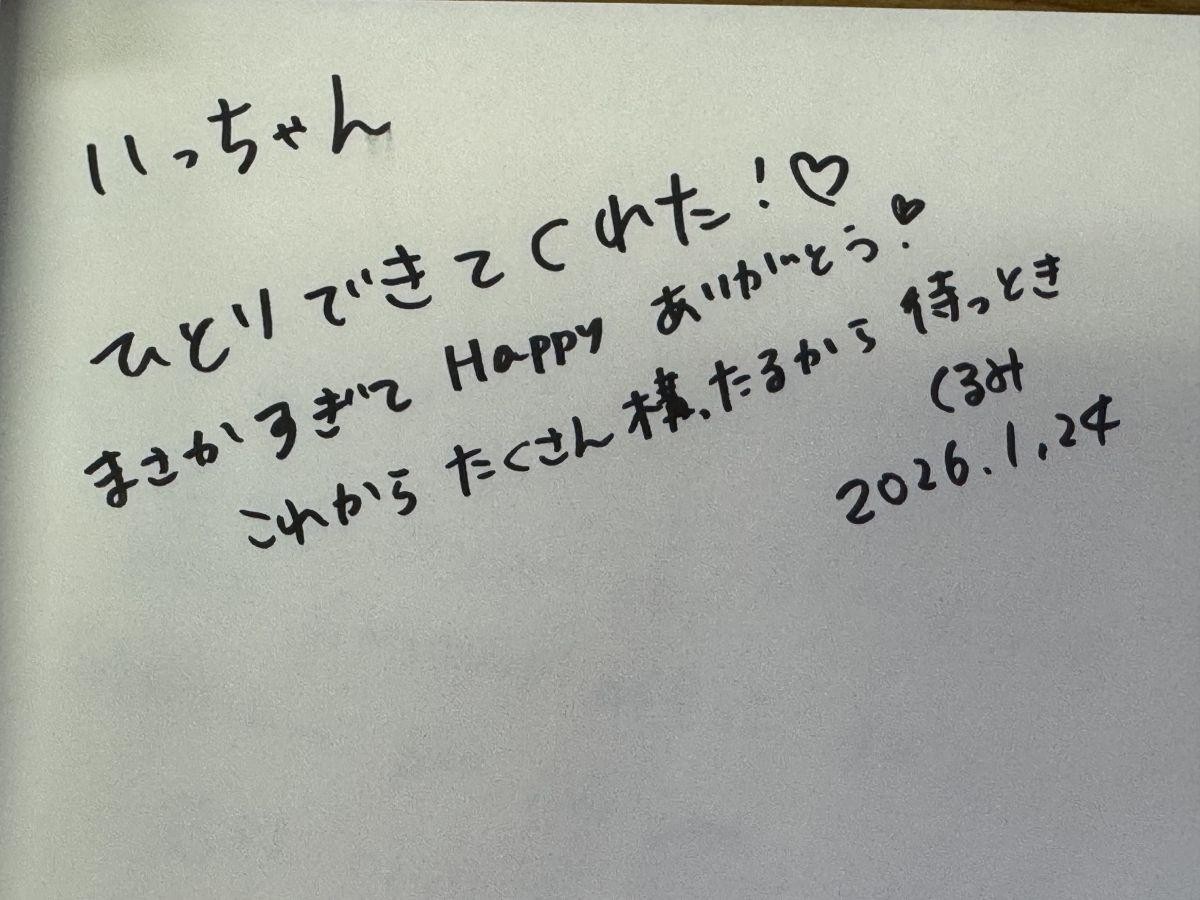 いっちゃん
ひとりできてくれた!♡
まさかすぎて Happy ありがとう!♡
これから たくさん 構ったるから 待っとき
くるみ
2026.1.24